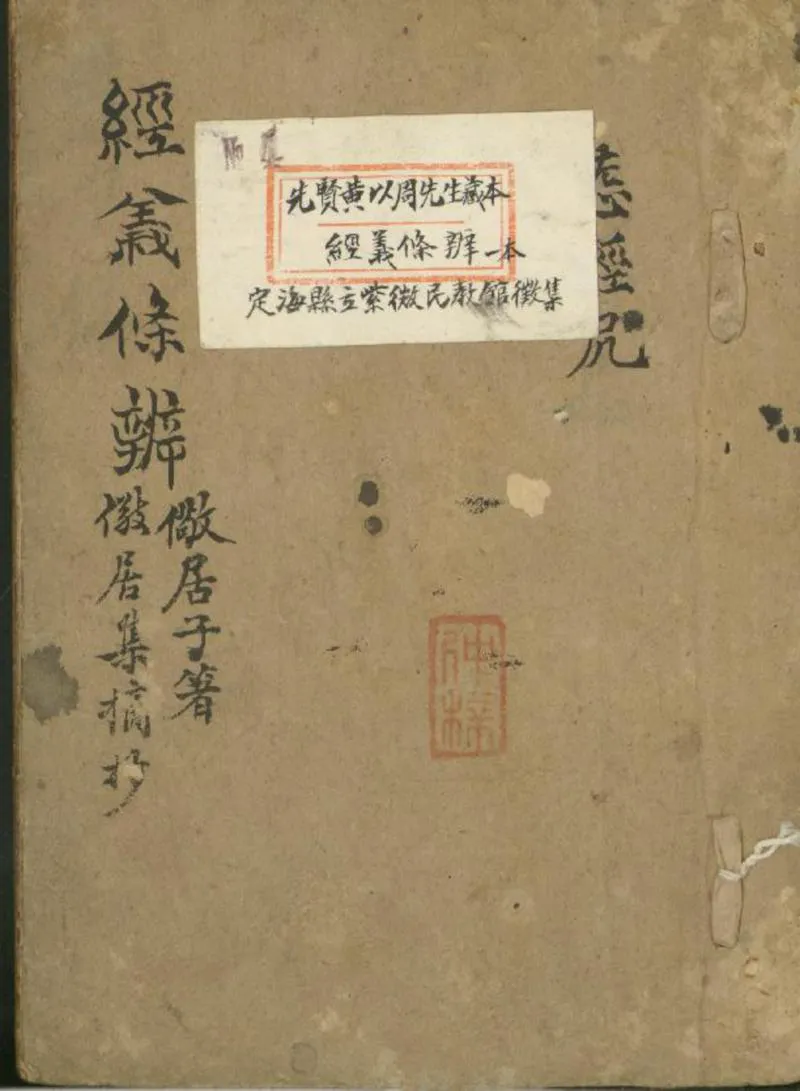 經
先賢黄以周先生藏本
經義條辨一本
定海縣立紫微民教館徵集
No 4
經義條辨
儆居子著
儆居集摘抄